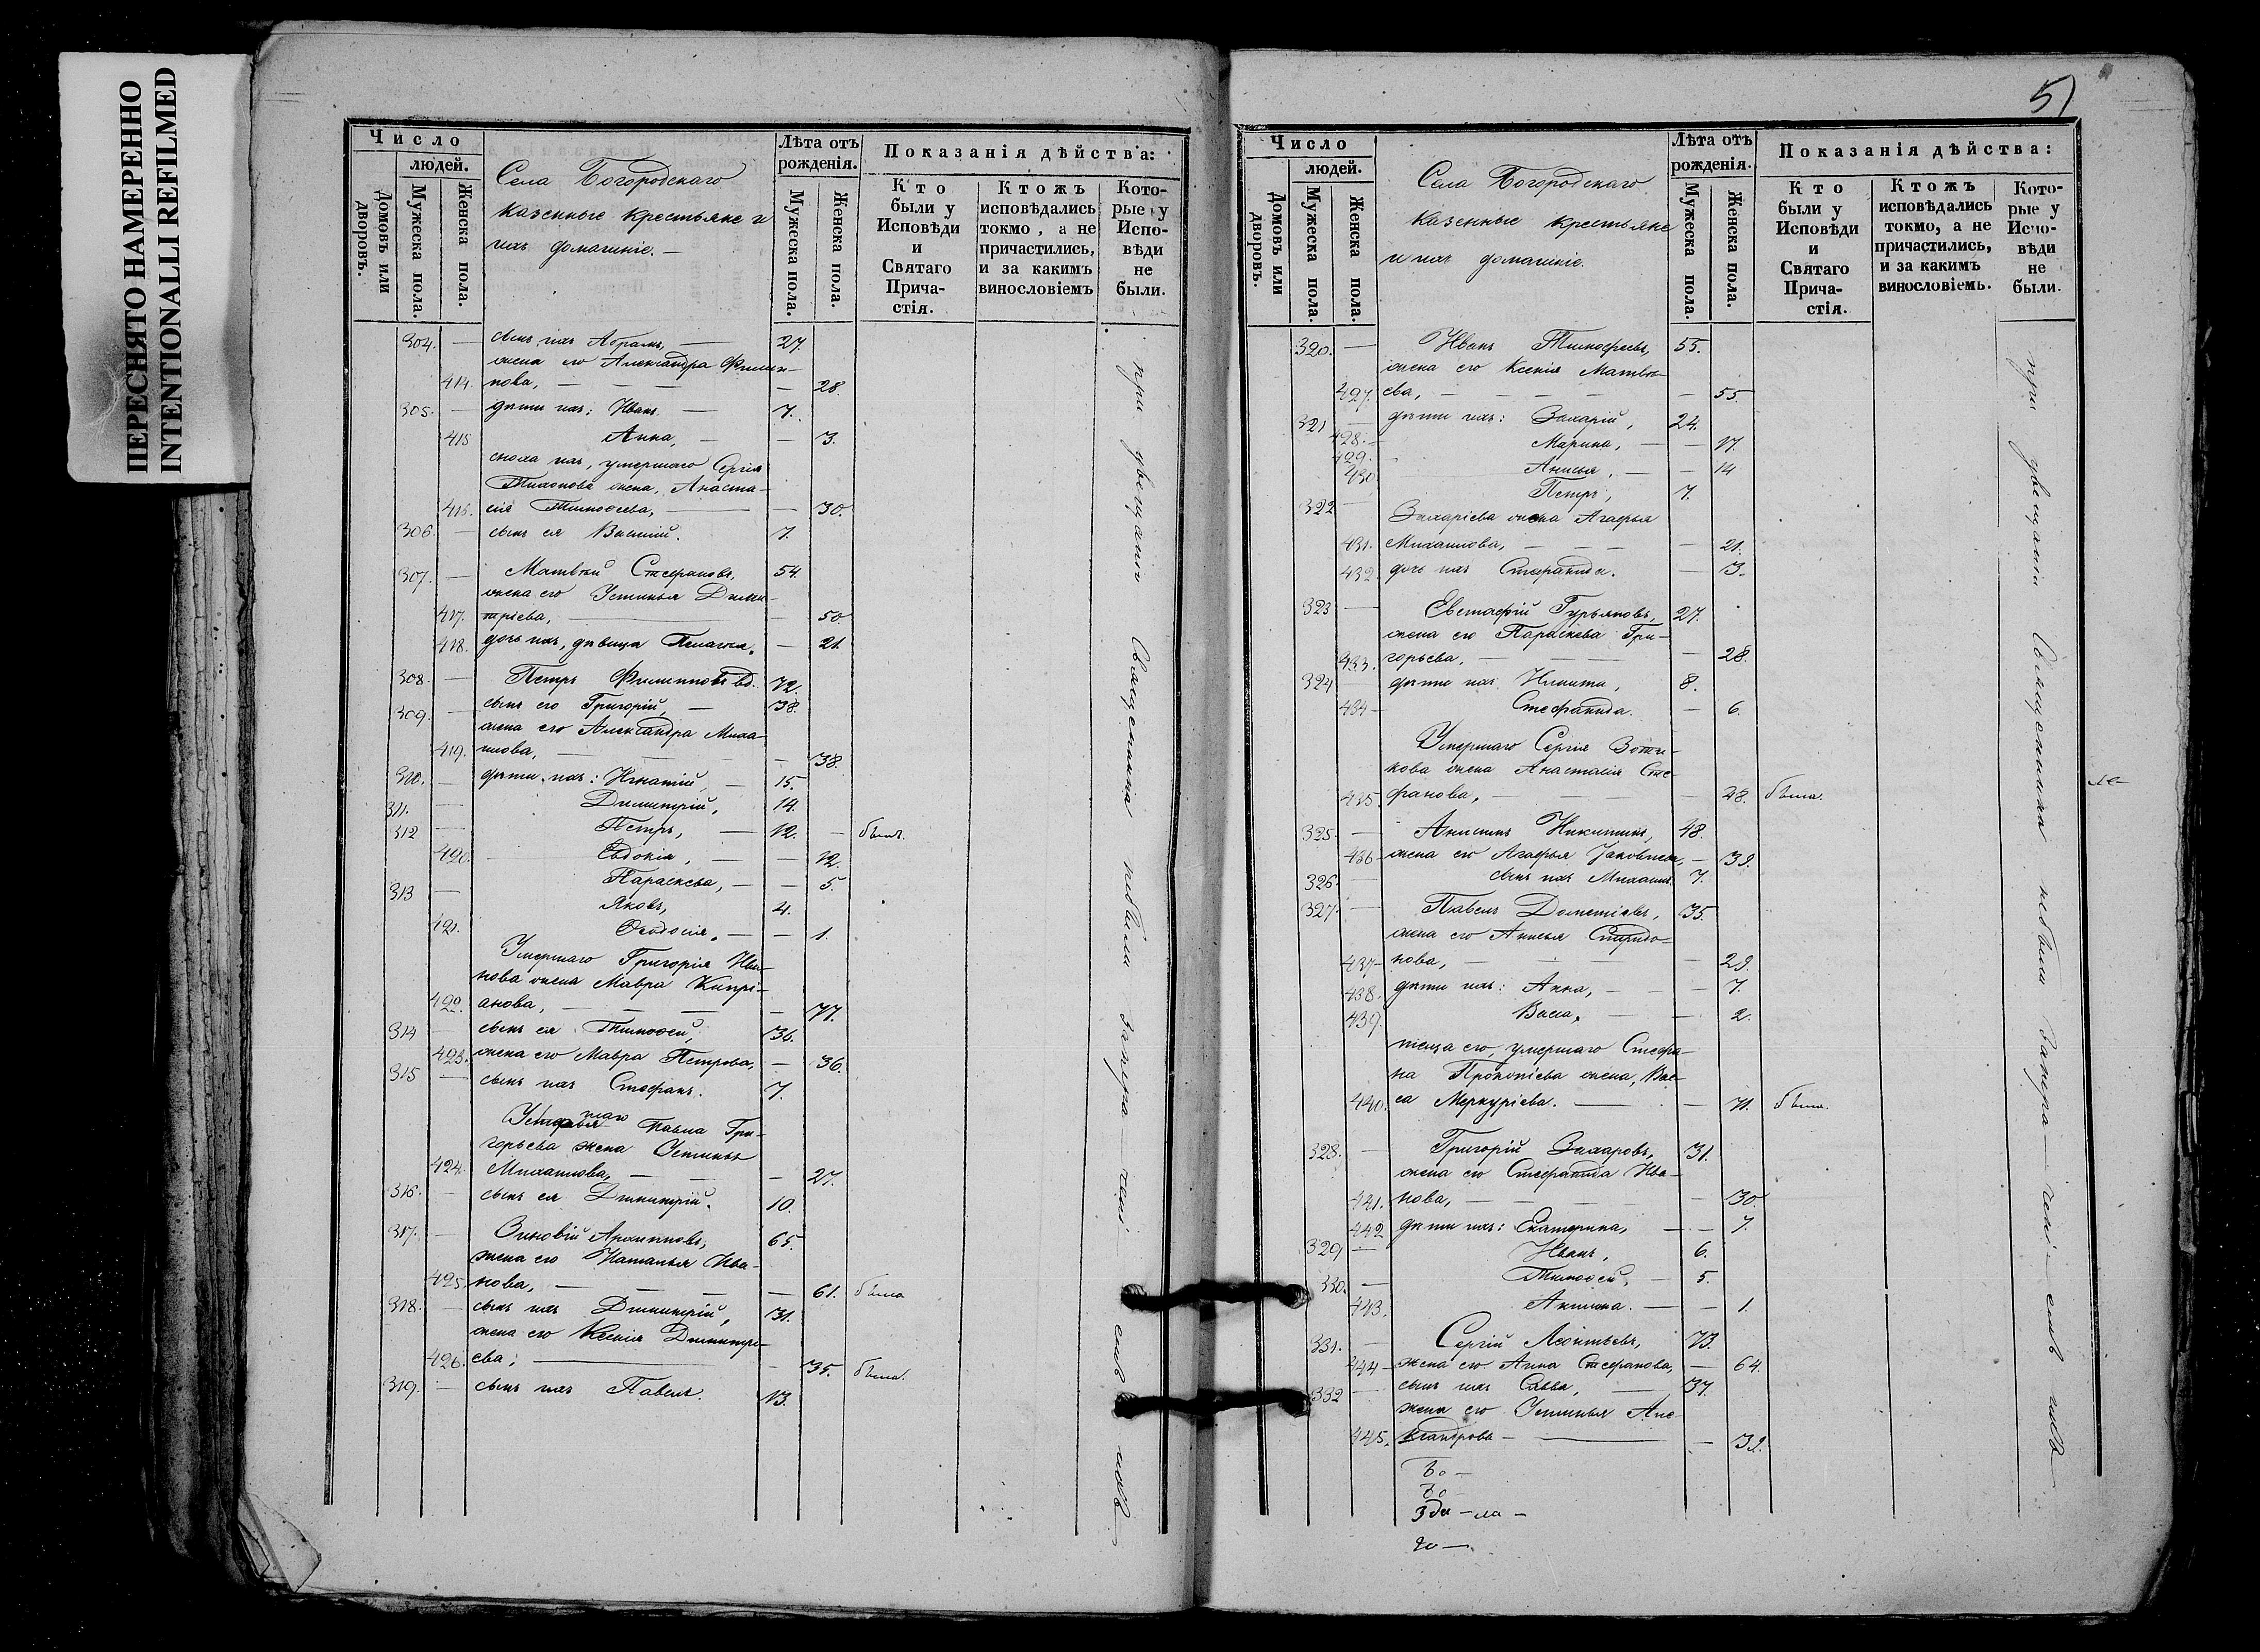 ПЕРЕСНЯТО НАМЕРЕННО
INTENTIONALLI REFILMED
Число
людей.
Домовъ или дворовъ.
Мужеска пола.
Женска пола.
Села Богородскаго
казенные крестьяне и
ихъ домашніе. —
Лѣта отъ рожденія.
Мужеска пола.
Женска пола.
Показанія дѣйства:
Кто были у Исповѣди и Святаго Причастія.
Ктожъ исповѣдались токмо, а не причастились, и за какимъ винословіемъ
Которые у Исповѣди не были.
304. — сынъ ихъ Абрамъ, — 27.
жена его Александра Филип-
414. пова, — — — — 28.
305. — дѣти ихъ: Иванъ — 7.
415 Анна, — — 3.
сноха ихъ, умершаго Сергія
Тихонова жена, Анаста-
416. сія Тимоѳеева, — — 30.
306. — сынъ ея Василій. 7.
307. — Матвѣй Стефановъ, 54.
жена его Устинья Дими-
417. тріева, — — 50.
418. дочь ихъ, дѣвица Пелагея. — 21.
308. — Петръ Филипповъ вд. 72.
309. — сынъ его Григорій, — 38.
жена его Александра Миха-
419. илова, — — 38.
310. — дѣти ихъ: Игнатій, — 15.
311. — Димитрій, 14.
312 — Петръ, — 12. — былъ.
420. Евдокія, — — 12.
Параскева, — — 5.
313 — Яковъ, 4.
421. Ѳеодосія, — — 1.
Умершаго Григорія Ива-
нова жена Мавра Кипрі-
422. анова, — — — — 77.
314 — сынъ ея Тимоѳей, 36.
423. жена его Мавра Петрова, — 36.
315 — сынъ ихъ Стефанъ. 7.
Умершаго Павла Гри-
горьева жена Устинья
424. Михаилова, — — — 27.
316. — сынъ ея Димитрій. 10.
317. — Зиновій Архиповъ, 65.
жена его Наталья Ива-
425. нова, — — — — 61. была
318. — сынъ ихъ Димитрій, 31.
жена его Ксенія Димитрі-
426. ева; — — 35. была.
319. — сынъ ихъ Павелъ. 13.
при увещаніи Священника небыли запера
51
Число
людей.
Домовъ или дворовъ.
Мужеска пола.
Женска пола.
Села Богородскаго
казенные крестьяне
и ихъ домашніе.
Лѣта отъ рожденія.
Мужеска пола.
Женска пола.
Показанія дѣйства:
Кто были у Исповѣди и Святаго Причастія.
Ктожъ исповѣдались токмо, а не причастились, и за какимъ винословіемъ.
Которые у Исповѣди не были.
320. — Иванъ Тимоѳеевъ, 55.
жена его Ксенія Матвѣ-
427. ева, — — — — — 55.
321 — дѣти ихъ: Захарій, 24.
428. — Марина, — — 17.
429. Анисья, — — 14
430
322 — Петръ, 7.
Захаріева жена Агафья
431. Михаилова, — — — — 21.
432. дочь ихъ Стефанида. — 3.
323 — Евстафій Гурьяновъ, 27.
жена его Параскева Гри-
433. горьева, — — — 28.
324 дѣти ихъ Никита, 8.
434 — Стефанида. — 6.
Умершаго Сергія Зоти-
кова жена Анастасія Сте-
435. фанова, — — — — 48. была.
325. — Анисимъ Никитинъ, 48.
436 жена его Агафья Іаковлева, — 39.
326. — сынъ ихъ Михаилъ. 7.
327. — Павелъ Дометіевъ, 35.
жена его Анисья Спиридо-
437 — нова, — — — — 29.
438. дѣти ихъ: Анна, — — 7.
439. Васса, — — 2.
теща его, умершаго Стефа-
на Прокопіева жена, Вас-
440. са Меркуріева. — — 71. была.
328. — Григорій Захаровъ, 31.
жена его Стефанида Ива-
441. нова, — — — — 30.
442 дѣти ихъ: Екатерина, — — 7.
329 — Иванъ, 6.
330. — Тимоѳей, — 5.
443. Акилина. — — 1.
331. — Сергій Леонтьевъ, 73.
444 — жена его Анна Стефанова, — 64.
332 — сынъ ихъ Савва, — 37.
жена его Устинья Але-
445. ксандрова — — — 39.
при увещаніи Священника небыли запера